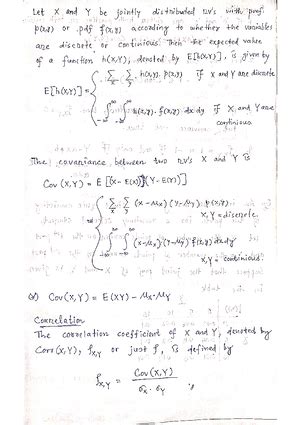 Let X and Y be jointly distributed rv's with pmf
p(x,y) or pdf f(x,y) according to whether the variables
are discrete or continious. Then the expected value
of a function h(X,Y), denoted by E[h(X,Y)], is given by
E[h(X,Y)] = { Σx Σy h(x,y). p(x,y) if X and Y are discrete
∫∞-∞ ∫∞-∞ h(x,y). f(x,y) dx dy if X and Y are
continious.
The covariance between two rv's X and Y is
Cov (X,Y) = E [(X - E(X)) (Y - E(Y))]
= { Σx Σy (x - μx) (y - μy) p(x,y)
X,Y = discrete.
∫∞-∞ ∫∞-∞ (x - μx) (y - μy) f(x,y) dx dy
X,Y = continious.
(or) Cov(X,Y) = E(XY) - μx.μy
Correlation
The correlation coefficient of X and Y, denoted by
Corr(X,Y), ρX,Y or just ρ, is defined by
ρX,Y = Cov(X,Y) / σx . σy